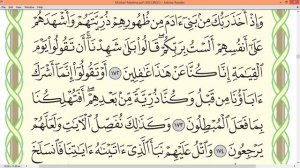 وَإِذْ أَخَذَ رَبُّكَ مِنۢ بَنِىٓ ءَادَمَ مِن ظُهُورِهِمْ ذُرِّيَّتَهُمْ وَأَشْهَدَهُمْ
عَلَىٰٓ أَنفُسِهِمْ أَلَسْتُ بِرَبِّكُمْ ۖ قَالُوا۟ بَلَىٰ ۛ شَهِدْنَآ ۛ أَن تَقُولُوا۟ يَوْمَ
ٱلْقِيَٰمَةِ إِنَّا كُنَّا عَنْ هَٰذَا غَٰفِلِينَ ١٧٢ أَوْ تَقُولُوٓا۟ إِنَّمَآ أَشْرَكَ
ءَابَآؤُنَا مِن قَبْلُ وَكُنَّا ذُرِّيَّةً مِّنۢ بَعْدِهِمْ ۖ أَفَتُهْلِكُنَا
بِمَا فَعَلَ ٱلْمُبْطِلُونَ ١٧٣ وَكَذَٰلِكَ نُفَصِّلُ ٱلْءَايَٰتِ وَلَعَلَّهُمْ
يَرْجِعُونَ ١٧٤ وَٱتْلُ عَلَيْهِمْ نَبَأَ ٱلَّذِىٓ ءَاتَيْنَٰهُ ءَايَٰتِنَا فَٱنسَلَخَ